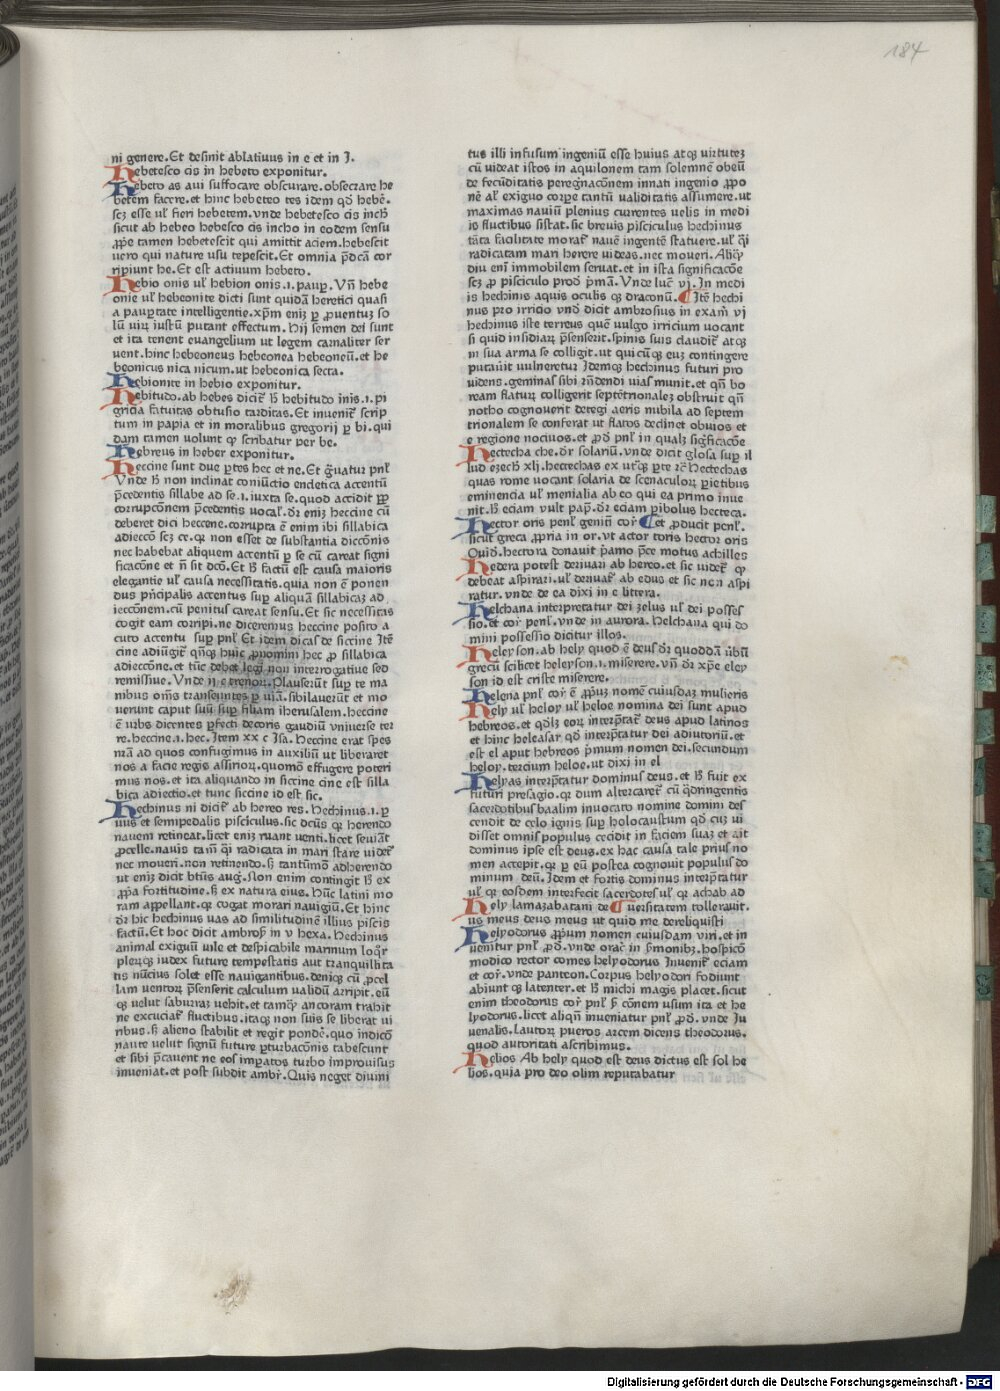 184
ni genere. Et definit ablatiuus in e et in J.
Hebetesco cis in hebeto exponitur.
Hebeto as aui suffocare obscurare. obsecrare he
betem facere. et hinc hebeteo tes idem qd̛ hebē.
scꝫ esse ul̛ fieri hebetem. vnde hebetesco cis inchō
sicut ab hebeo hebesco cis incho in eodem sensu
ꝓṗe tamen hebetescit qui amittit aciem. hebescit
uero qui nature usu tepescit. Et omnia p̄dcā cor
ripiunt he. Et est actiuum hebeto.
Hebio onis ul̛ hebion onis .ı. paup̲. Vn̄ hebe
onie ul̛ hebeonite dicti sunt quidā heretici quasi
a paup̲tate intelligentie. xp̄m eniꝫ p̲ ꝓuentuꝫ so
lū uirꝫ iustū putant effectum. Hij semen dei sunt
et ita tenent euangelium ut legem carnaliter ser
uent. hinc hebeoneus hebeonea hebeoneū. et he
beonicus nica nicum. ut hebeonica secta.
Hebionite in hebio exponitur.
Hebitudo. ab hebes dicit̛ h̄ hebitudo inis .ı. pi
gricia fatuitas obtusio tarditas. Et inuenit̛ scrip
tum in papia et in moralibus gregorij p̲ bi. qui
dam tamen uolunt qꝫ scribatur per be.
Hebreus in heber exponitur.
Heccine sunt due p̲tes hec et ne. Et g̊uatur pnl̛
Vnde h̄ non inclinat coniūctio encletica accentū
p̄cedentis sillabe ad se .ı. iuxta se. quod accidit ꝓp̲
corrupcōnem p̄cedentis uocal̛. d̛r eniꝫ heccine cū
deberet dici heccene. corrupta ē enim ibi sillabica
adieccō scꝫ ce. qꝫ non esset de substantia diccōnis
nec habebat aliquem accentū p̲ se cū careat signi
ficacōne et n̄ sit dcō. Et h̄ factū est causa maioris
elegantie ul̛ causa necessitatis. quia non ē ponen
dus pn̛cipalis accentus sup̲ aliquā sillabicaꝫ ad
iecconem. cū penitus careat sensu. Et sic necessitas
cogit eam corripi. ne diceremus heccine posito a
cuto accentu sup̲ pnl̛. Et idem dicas de siccine Itē
cine adiūgit̛ qn̄qꝫ huic ꝓnomini hec ꝓ sillabica
adieccōne. et tūc debet legi non interrogatiue sed
remissiue. Vnde ij e trenorꝫ. Plauserūt sup̲ te ma
nibus om̄s transeuntes p̲ uiā. sibilauerūt et mo
uerunt caput suū sup̲ filiam iherusalem. heccine
ē urbs dicentes p̲fecti decoris gaudiū vniuerse ter
re. heccine .ı. hec. Item xx c Isa. Heccine erat spes
nr̄a ad quos confugimus in auxiliū ut liberaret
nos a facie regis assiriorꝫ. quomō effugere poteri
mus nos. et ita aliquando in siccine cine est silla
bica adiectio. et tunc siccine id est sic.
Hechinus ni dicit̛ ab hereo res. Hechinus .ı. p̲
uus et semipedalis pisciculus. sic dcūs qꝫ herendo
nauem retineat. licet eniꝫ ruant uenti. licet seuiāt
ꝓcelle. nauis tam̄ q̄i radicata in mari stare uidet̛
nec moueri. non retinendo. s̄ tantūmō adherendo
ut eniꝫ dicit bt̄us aug̛. Non enim contingit h̄ ex
ꝓp̲a fortitudine. s̄ ex natura eius. Hūc latini mo
ram appellant. qꝫ cogat morari nauigiū. Et hinc
d̛r hic hechinus uas ad similitudinē illius piscis
factū. Et hoc dicit ambros̛ in v hexa. Hechinus
animal exiguū uile et despicabile marinum loq̛r
plerūqꝫ index future tempestatis aut tranquilita
tis nūcius solet esse nauigantibus. deniqꝫ cū ꝓcel
lam uentorꝫ p̄senserit calculum ualidū arripit. eū
qꝫ uelut saburraꝫ uehit. et tamqꝫ ancoram trahit
ne excuciat̛ fluctibus. itaqꝫ non suis se liberat ui
ribus. s̄ alieno stabilit et regit ponde̛. quo indicō
naute uelut signū future p̲turbacōnis tabescunt
et sibi p̄cauent ne eos imp̲atos turbo improuisus
inueniat. et post subdit ambr̛. Quis neget diuini
tus illi infusum ingeniū esse huius atqꝫ uirtuteꝫ
cū uideat istos in aquilonem tam solemnē obeū
de fecūditatis peregnacōnem innati ingenio ꝓpo
nē al̛ exiguo corp̲e tantū ualiditatis assumere. ut
maximas nauiū plenius currentes uelis in medi
is fluctibus sistat. sic breuis pisciculus hechinus
tāta facilitate morat̛ nauē ingentē statuere. ul̛ q̄i
radicatam mari herere uideas. nec moueri. Aliq̛
diu eni immobilem seruat. et in ista significacōe
scꝫ ꝓ pisciculo prod̛ p̄mā. Vnde luc̛ vj. In medi
is hechinis aquis oculis qꝫ draconū. ¶ Itē hechi
nus pro irricio vnd̛ dicit ambrosius in exam̄ vj
hechinus iste terreus quē uulgo irricium uocant
si quid insidiarꝫ p̄senserit. spinis suis claudit̛ atqꝫ
in sua arma se colligit. ut qui cūqꝫ euꝫ contingere
putauit uulneretur Idemqꝫ hechinus futuri pro
uidens. geminas sibi rn̄dendi uias munit. et qn̄ bo
ream flaturꝫ colligerit septētrionaleꝫ obstruit qn̄
notho cognouerit detegi aeris nubila ad septem
trionalem se conferat ut flatos declinet obuios et
e regione nociuos. et ꝓd̛ pnl̛ in qualꝫ sig̛ficacōe
Hectecha che. d̛r solariū. vnde dicit glosa sup̲ il
lud ezech̛ xlj. hectechas ex utꝯqꝫ p̲te rē Hectechas
quas rome uocant solaria de scenaculorꝫ p̲ietibus
eminencia ul̛ menialia ab eo qui ea primo inue
nit. h̄ eciam vult pap̛. d̛r eciam p̲ibolus hecteca.
Hector oris penl̛ geniū cor̛ ¶ et ꝓducit penl̛.
sicut greca ꝓpria in or. vt actor toris hector oris
Ouid̛. hectora donauit p̄amo p̄ce motus achilles
Hedera potest deriuari ab hereo. et sic uidet̛ qꝫ
debeat aspirari. ul̛ deriuat̛ ab edus et sic non aspi
ratur. vnde de ea dixi in e littera.
Helchana interpretatur dei zelus ul̛ dei posses
sio. et cor̛ penl̛. vnde in aurora. Helchana qui do
mini possessio dicitur illos.
Heleyson. ab hely quod ē deus d̛r quoddā v̄bū
grecū scilicet heleyson .ı. miserere. vn̄ d̛r xp̄e eley
son id est criste miserere.
Helena pnl̛ cor̛ ē ꝓp̲uꝫ nomē cuiusdaꝫ mulieris
Hely ul̛ heloy ul̛ heloe nomina dei sunt apud
hebreos. et qd̛lꝫ eorꝫ interp̲tat̛ deus apud latinos
et hinc heleasar qd̛ interp̲tatur dei adiutoriū. et
est el aput hebreos p̄mum nomen dei. secundum
heloy. tercium heloe. ut dixi in el
Helyas interp̲tatur dominus deus. et h̄ fuit ex
futuri presagio. qꝫ dum altercaret̛ cū q̛dringentis
sacerdotibus baalim inuocato nomine domini des
cendit de celo ignis sup̲ holocaustum qd̛ cuꝫ ui
disset omnis populus cecidit in faciem suaꝫ et ait
dominus ipse est deus. ex hac causa tale prius no
men accepit. qꝫ p̲ eū postea cognouit populus do
minum deū. Idem et fortis dominus interp̲tatur
ul̛ qꝫ eosdem interfecit sacerdotes ul̛ qꝫ achab ad
Hely lamazabatani de ¶ uersitatem tollerauit.
us meus deus meus ut quid me dereliquisti
Helyodorus ꝓp̲um nomen cuiusdam viri. et in
uenitur pnl̛ ꝓd̛. vnde orac̛ in s̄monibꝫ. hospicō
modico rector comes helyodorus Inuenit̛ eciam
et cor̛. vnde panteon. Corpus helyodori fodiunt
abiunt qꝫ latenter. et h̄ michi magis placet. sicut
enim theodorus cor̛ pnl̛ s̄ cōnem usum ita et he
lyodorus. licet aliqn̄ inueniatur pnl̛ ꝓd̛. vnde Ju
uenalis. lautorꝫ pueros artem dicens theodorus.
quod autoritati ascribimus.
Helios Ab hely quod est deus dictus est sol he
lios. quia pro deo olim reputabatur
Digitalisierung gefördert durch die Deutsche Forschungsgemeinschaft - DFG